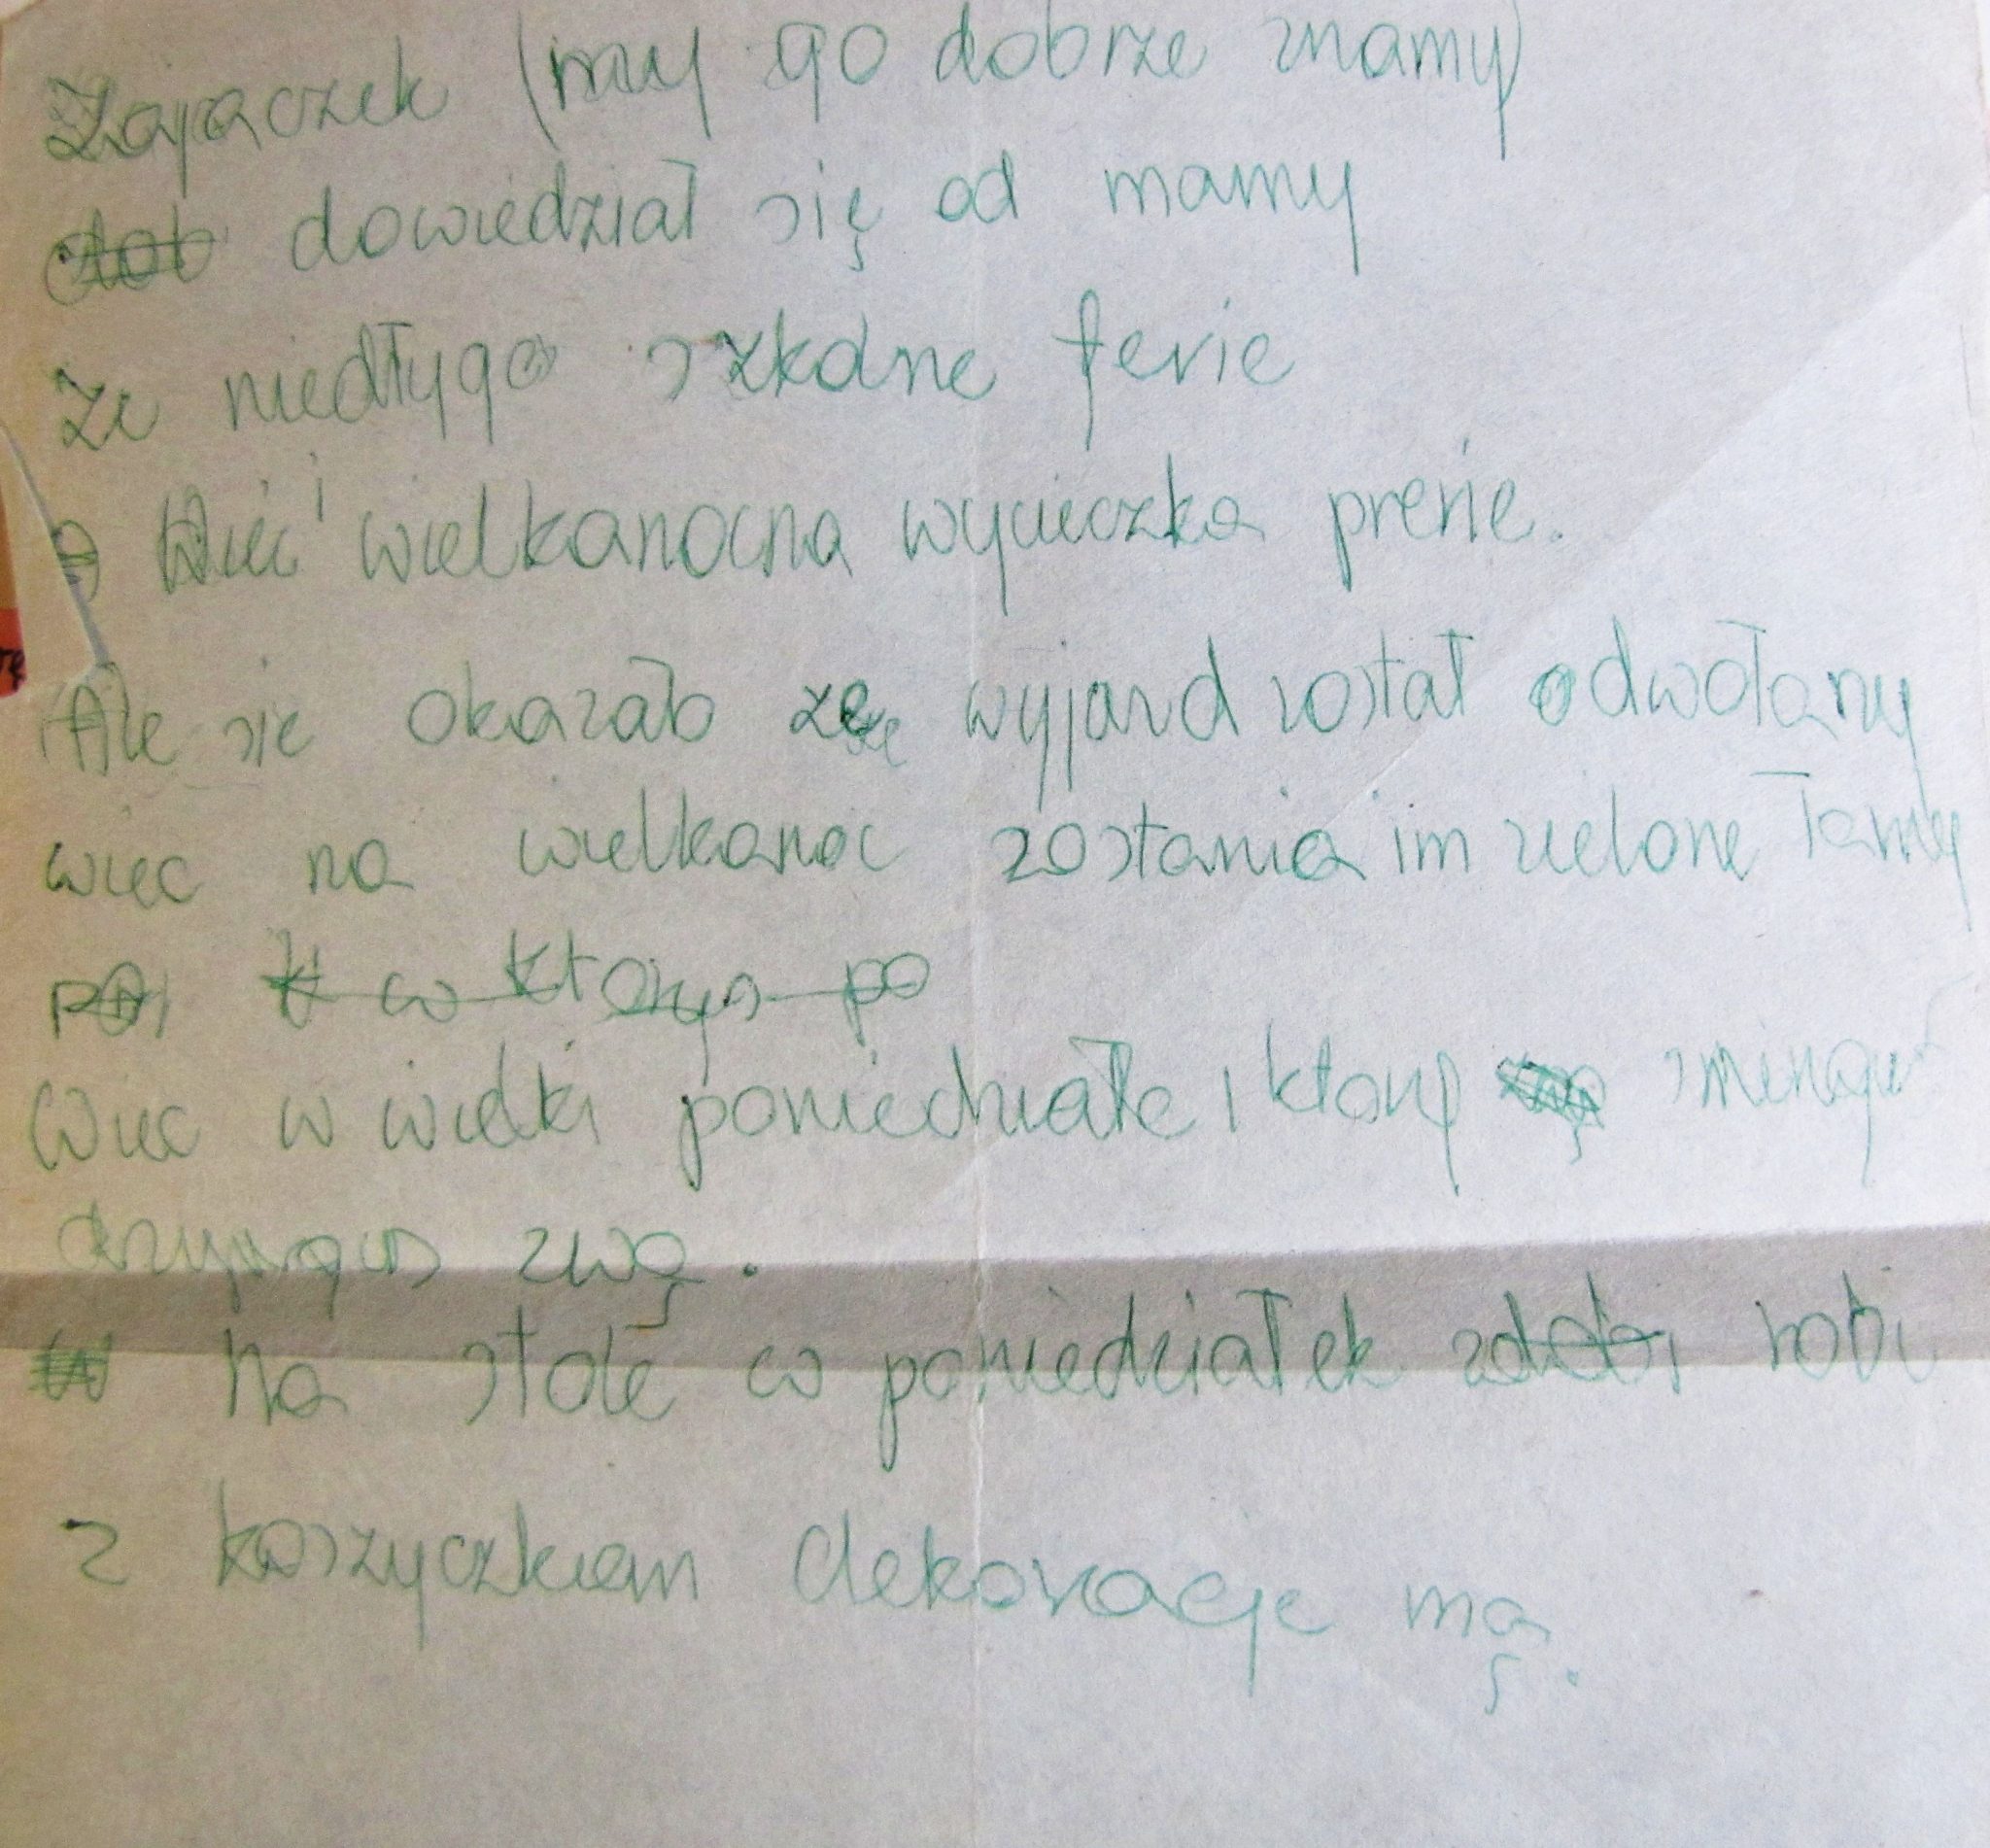 Zajączek (my go dobrze znamy)
dowiedział się od mamy
że niedłygo szkolne ferie
Wieć i wielkanocna wycieczka prerie.
Ale sie okazało że wyjazd został odwołany
wiec na wielkanoc zostania im zielone łamy
w ktorys po
Wiec w wielki poniedziałe, ktory smingus
dzyngus zwą.
Na stole co poniedziałek zdobi robi
z koszyczkiem dekoracje mą.